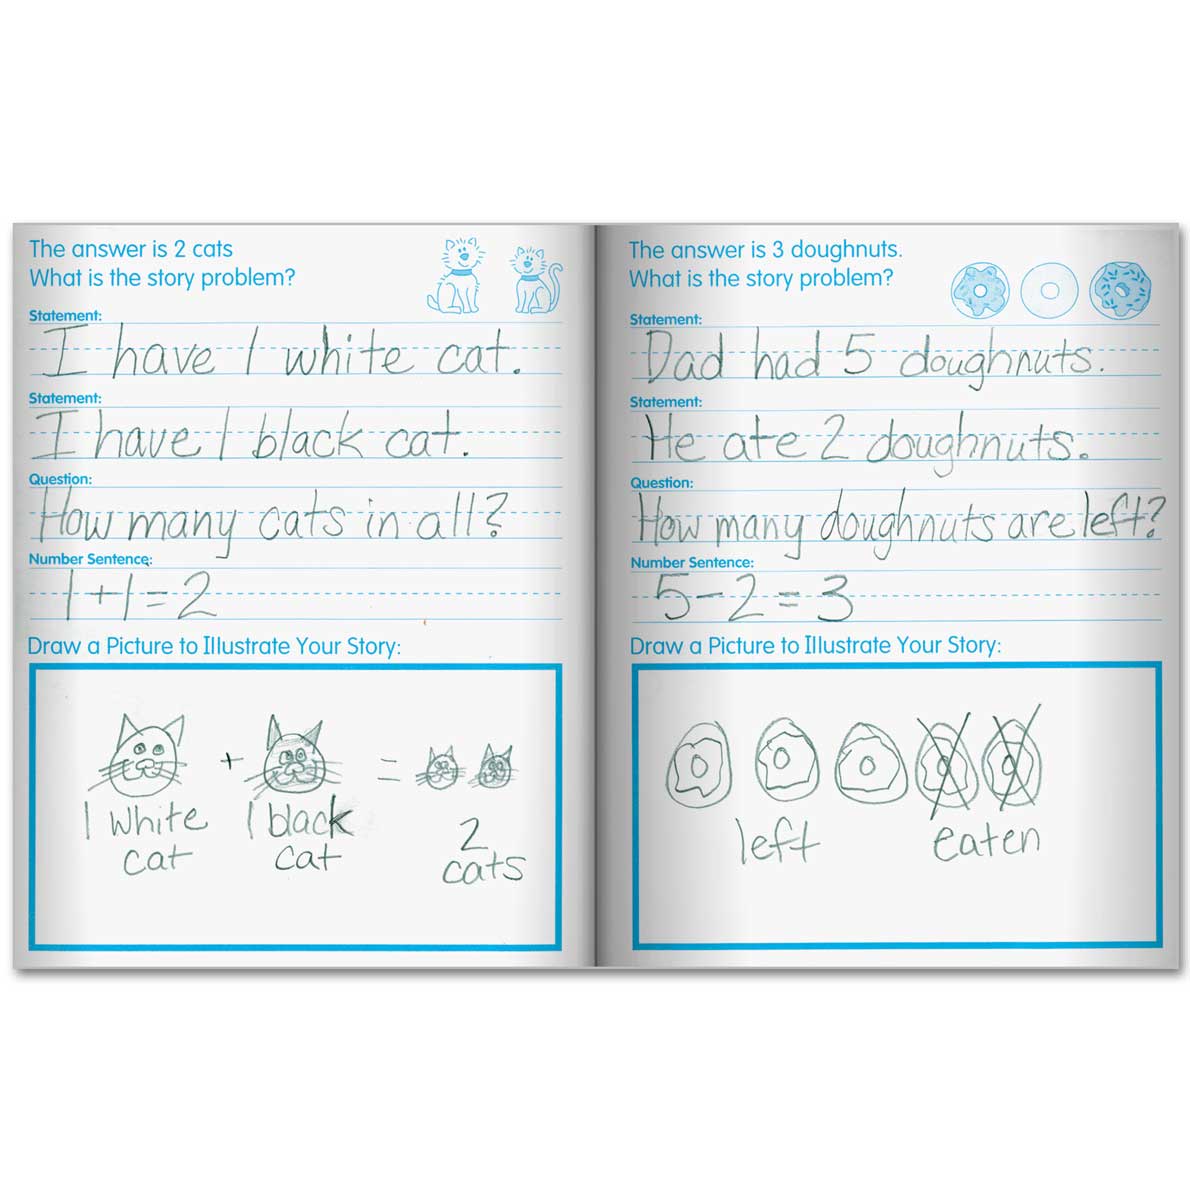 The answer is 2 cats
What is the story problem?
Statement:
I have 1 white cat.
Statement:
I have 1 black cat.
Question:
How many cats in all?
Number Sentence:
1+1=2
Draw a Picture to Illustrate Your Story:
+ =
1 white 1 black 2
cat cat cats
The answer is 3 doughnuts.
What is the story problem?
Statement:
Dad had 5 doughnuts.
Statement:
He ate 2 doughnuts.
Question:
How many doughnuts are left?
Number Sentence:
5-2=3
Draw a Picture to Illustrate Your Story:
left eaten